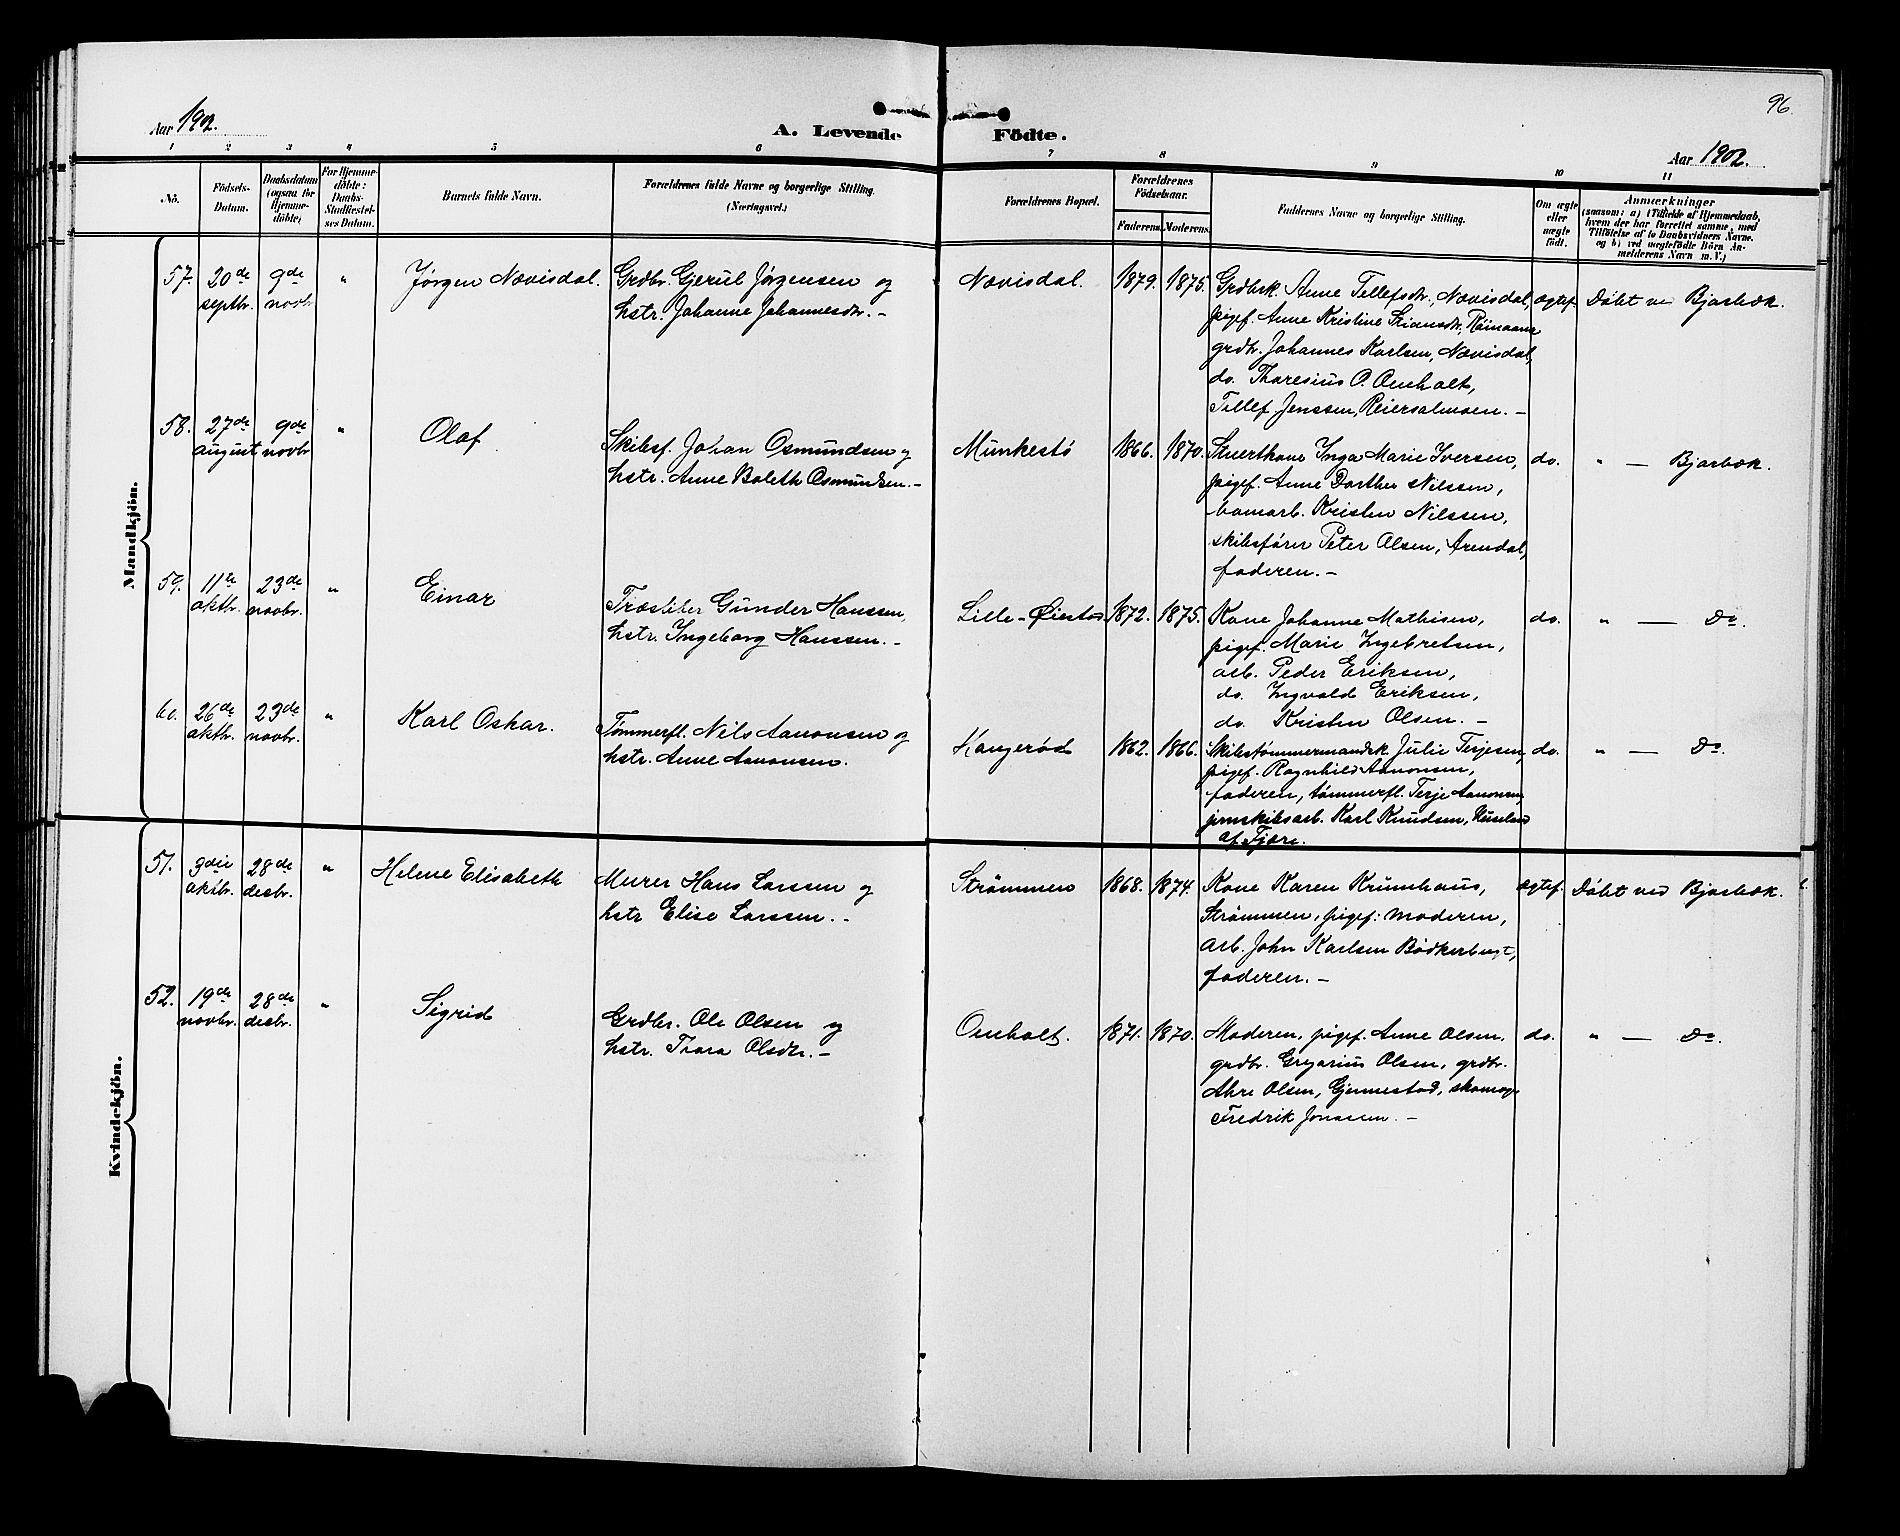 96.
Aar 1902.
A. Levende Födte.
Aar 1902.
1 2 3 4 5 6 7 8 9 10 11
No.
Födsels-
Datum.
Daabsdatum
(ogsaa for
Hjemme-
döbte)
For Hjemme-
döbte:
Daabs-
Stadfæstel-
ses Datum.
Barnets fulde Navn.
Forældrenes fulde Navne og borgerlige Stilling.
(Næringsvei.)
Forældrenes Bopæl.
Forældrenes
Födselsaar.
Faderens. Moderens.
Faddernes Navne og borgerlige Stilling.
Om ægte
eller
uægte
födt.
Anmærkninger
(saasom: a) i Tilfælde af Hjemmedaab,
hvem der har forrettet samme, med
Tilföielse af to Daabsvidners Navne.
og b) ved uægtefödte Börn An-
melderens Navn m. V.)
Mandkjön.
57. 20de septbr. 9de novbr. "
Jørgen Nævisdal.
Grdbr. Gjerul Jørgensen og
hstr. Johanne Johannesdtr. -
Nævisdal. 1879. 1875.
Grdbrk. Anne Tellefsdtr., Nævisdal,
pigef. Anne Kristine
grdbr. Johannes Karlsen, Nævisdal,
do. Tharesius O. Omholt,
Tellef Jenssen, Reiersalmoen. -
ægtef. Døbt ved Bjorbæk.
58. 27de august 9de novbr "
Olaf
Skibsf. Johan Osmundsen og
hstr. Anne Boleth Osmundsen. -
Munkestø 1866. 1870.
Stuertkone Inga Marie Iversen,
pigef. Anne Dorthea Nilssen,
bomarb. Kristen Nilssen,
skibsfører Peter Olsen, Arendal,
faderen. -
do. " — Bjorbæk.
59. 11te oktbr. 23de novbr. "
Einar
Træsliber Gunder Hanssen,
hstr. Ingeborg Hanssen. -
Lille-Øiestad 1872. 1875.
Kone Johanne Mathisen,
pigef. Marie Ingebretsen,
arb. Peder Eriksen,
do. Ingvald Eriksen,
do. Kristen Olsen. -
do. " — Do.
60. 26de oktbr. 23de novbr. "
Karl Oskar.
Tømmerfl. Nils Aanonsen og
hstr. Anne Aanonsen.
Kangerød 1862. 1866.
Skibstømmermandsk. Julie Terjesen,
pigef. Ragnhild Aanonsen,
faderen, tømmerfl. Terje Aanonsen,
jernskibsarb. Karl Knudsen,
af Fjære.
do. " — Do
Kvindekjön.
51. 3die oktbr. 28de desbr. "
Helene Elisabeth
Murer Hans Larssen og
hstr Elise Larssen. -
Strømmen 1868. 1874.
Kone Karen Krumhaus,
Strømmen, pigef: moderen,
arb. John Karlsen
faderen. -
ægtef. Døbt ved Bjorbæk.
52. 19de novbr. 28de desbr. "
Sigrid
Grdbr. Ole Olsen og
hstr. Thora Olsdtr. -
Omholt. 1871. 1870.
Moderen, pigef. Anne Olsen,
grdbr. Gregarius Olsen, grdbr.
Olsen, Gjennestad, skomag.
Fredrik Jonassen. -
do. " — Do.